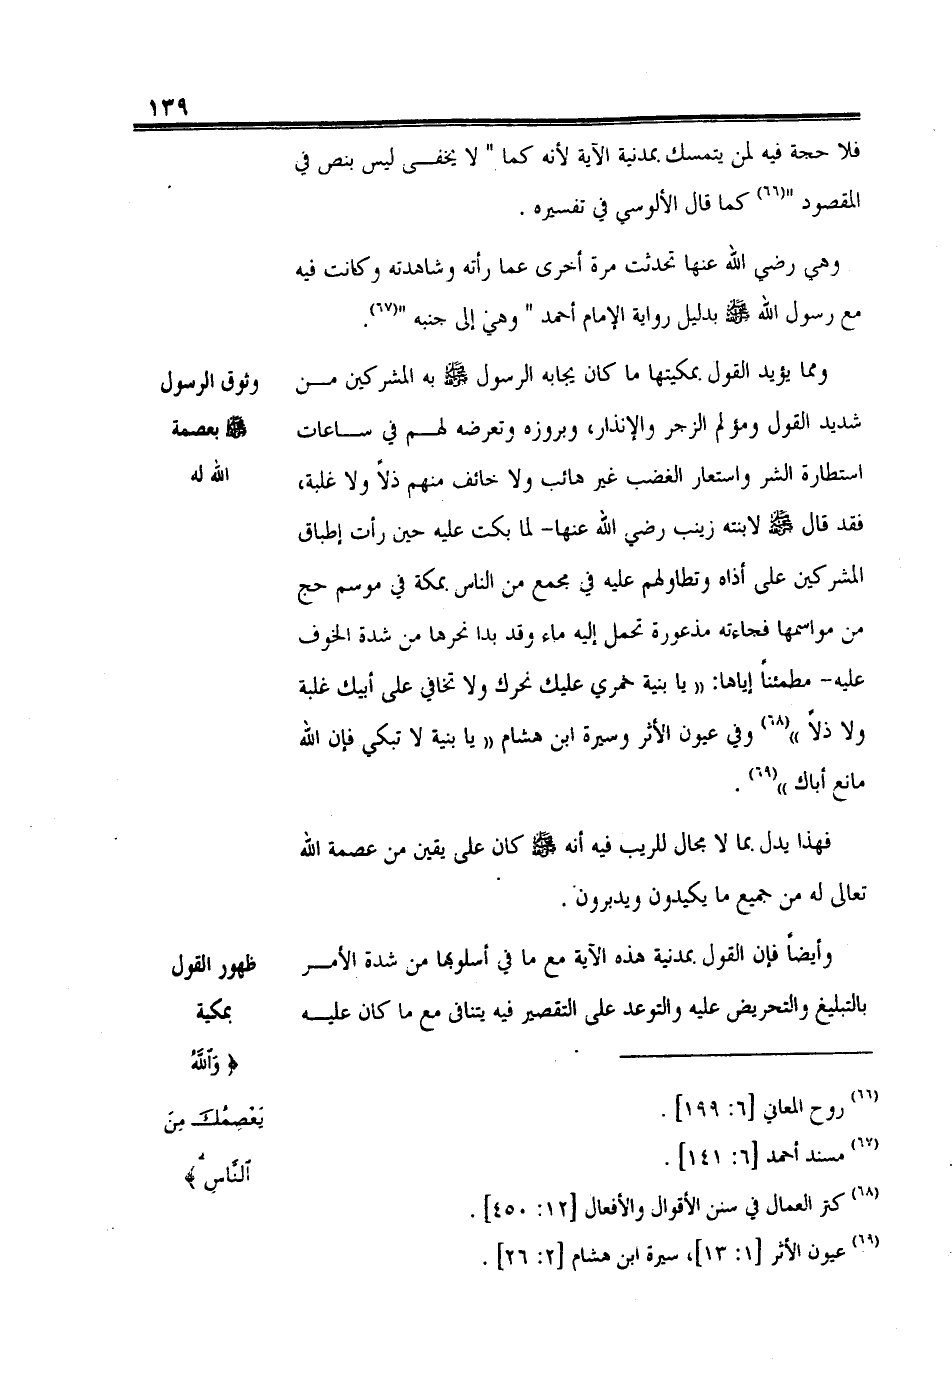 ١٣٩
فلا حجة فيه لمن يتمسك بمدنية الآية لأنه كما " لا يخفــى ليس بنص في
المقصود "(٦٦) كما قال الألوسي في تفسيره .
وهي رضي الله عنها تحدثت مرة أخرى عما رأته وشاهدته وكانت فيه
مع رسول الله ﷺ بدليل رواية الإمام أحمد " وهي إلى جنبه "(٦٧).
ومما يؤيد القول بمكيتها ما كان يجابه الرسول ﷺ به المشركين مــن
شديد القول ومؤلم الزجر والإنذار، وبروزه وتعرضه لهــم في ســاعات
استطارة الشر واستعار الغضب غير هائب ولا خائف منهم ذلاً ولا غلبة،
فقد قال ﷺ لابنته زينب رضي الله عنها- لما بكت عليه حين رأت إطباق
المشركين على أذاه وتطاولهم عليه في مجمع من الناس بمكة في موسم حج
من مواسمها فجاءته مذعورة تحمل إليه ماء وقد بدا نحرها من شدة الخوف
عليه- مطمئناً إياها: (( يا بنية خمري عليك نحرك ولا تخافي على أبيك غلبة
ولا ذلاً ))(٦٨) وفي عيون الأثر وسيرة ابن هشام (( يا بنية لا تبكي فإن الله
مانع أباك ))(٦٩) .
فهذا يدل بما لا مجال للريب فيه أنه ﷺ كان على يقين من عصمة الله
تعالى له من جميع ما يكيدون ويدبرون .
وأيضاً فإن القول بمدنية هذه الآية مع ما في أسلوبها من شدة الأمــر
بالتبليغ والتحريض عليه والتوعد على التقصير فيه يتنافى مع ما كان عليــه
وثوق الرسول
ﷺ بعصمة
الله له
ظهور القول
بمكية
﴿ وَٱللَّهُ
يَعْصِمُكَ مِنَ
ٱلنَّاسِ ۗ ﴾
(٦٦) روح المعاني [٦: ١٩٩] .
(٦٧) مسند أحمد [٦: ١٤١] .
(٦٨) كتر العمال في سنن الأقوال والأفعال [١٢: ٤٥٠] .
(٦٩) عيون الأثر [١: ١٣]، سيرة ابن هشام [٢: ٢٦] .